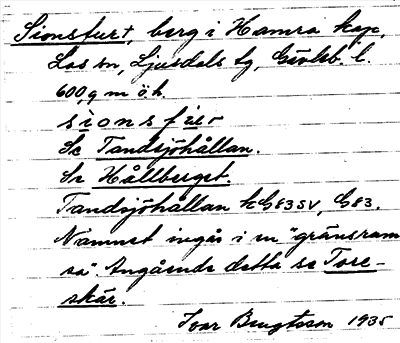 Sionsfurt, berg i Hamra kap,
Los sn, Ljusdals tg, Gävleb. l.
600,9 m ö.h.
sionsfur
Se Tandsjöhållan.
Se Hållberget.
Tandsjöhållan kG83SV, G83.
Namnet ingår i en "gränsram
sa". Angående detta se Tore-
skär.
Ivar Bengtsson 1935